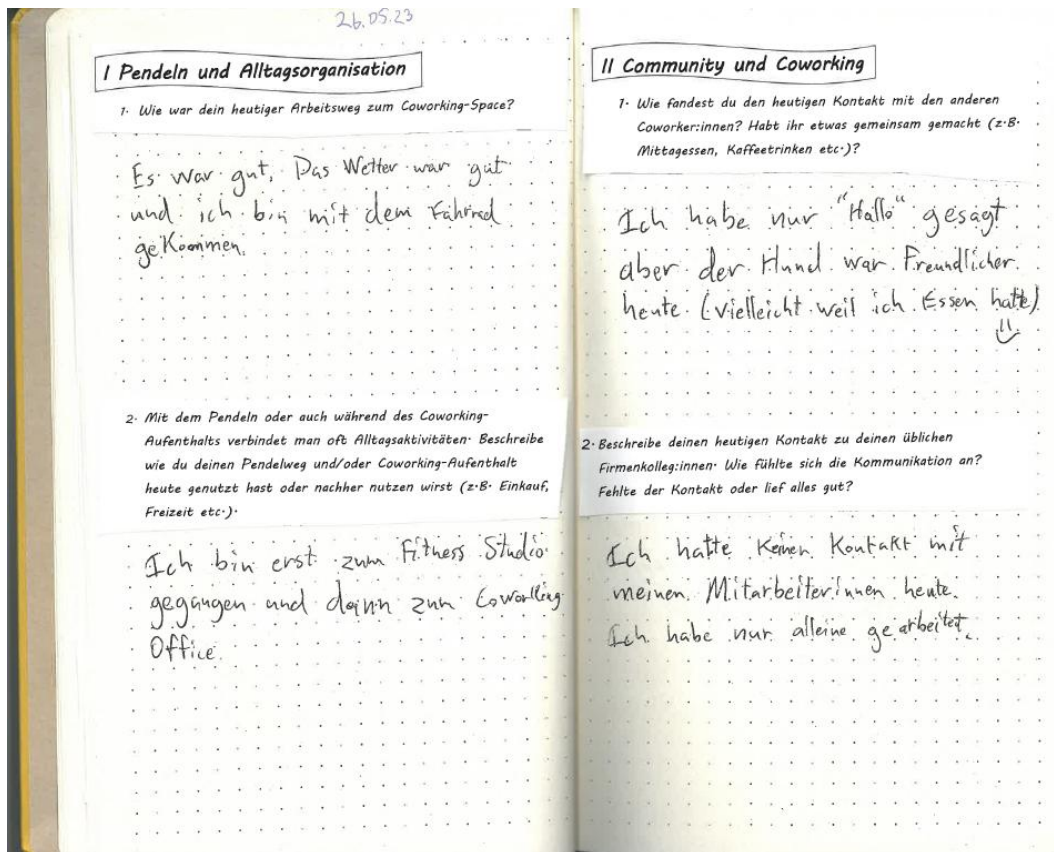 26.05.23
I Pendeln und Alltagsorganisation
1. Wie war dein heutiger Arbeitsweg zum Coworking-Space?
Es war gut, Das Wetter war gut
und ich bin mit dem Fahrrad
gekommen.
2. Mit dem Pendeln oder auch während des Coworking-
Aufenthalts verbindet man oft Alltagsaktivitäten. Beschreibe
wie du deinen Pendelweg und/oder Coworking-Aufenthalt
heute genutzt hast oder nachher nutzen wirst (z.B. Einkauf,
Freizeit etc.).
Ich bin erst zum Fitness Studio
gegangen und dann zum Coworking
Office.
II Community und Coworking
1. Wie fandest du den heutigen Kontakt mit den anderen
Coworker:innen? Habt ihr etwas gemeinsam gemacht (z.B.
Mittagessen, Kaffeetrinken etc.)?
Ich habe nur "Hallo" gesagt
aber der Hund war Freundlicher
heute (vielleicht weil ich Essen hatte)
2. Beschreibe deinen heutigen Kontakt zu deinen üblichen
Firmenkolleg:innen. Wie fühlte sich die Kommunikation an?
Fehlte der Kontakt oder lief alles gut?
Ich hatte keinen Kontakt mit
meinen Mitarbeiter:innen heute.
Ich habe nur alleine gearbeitet.